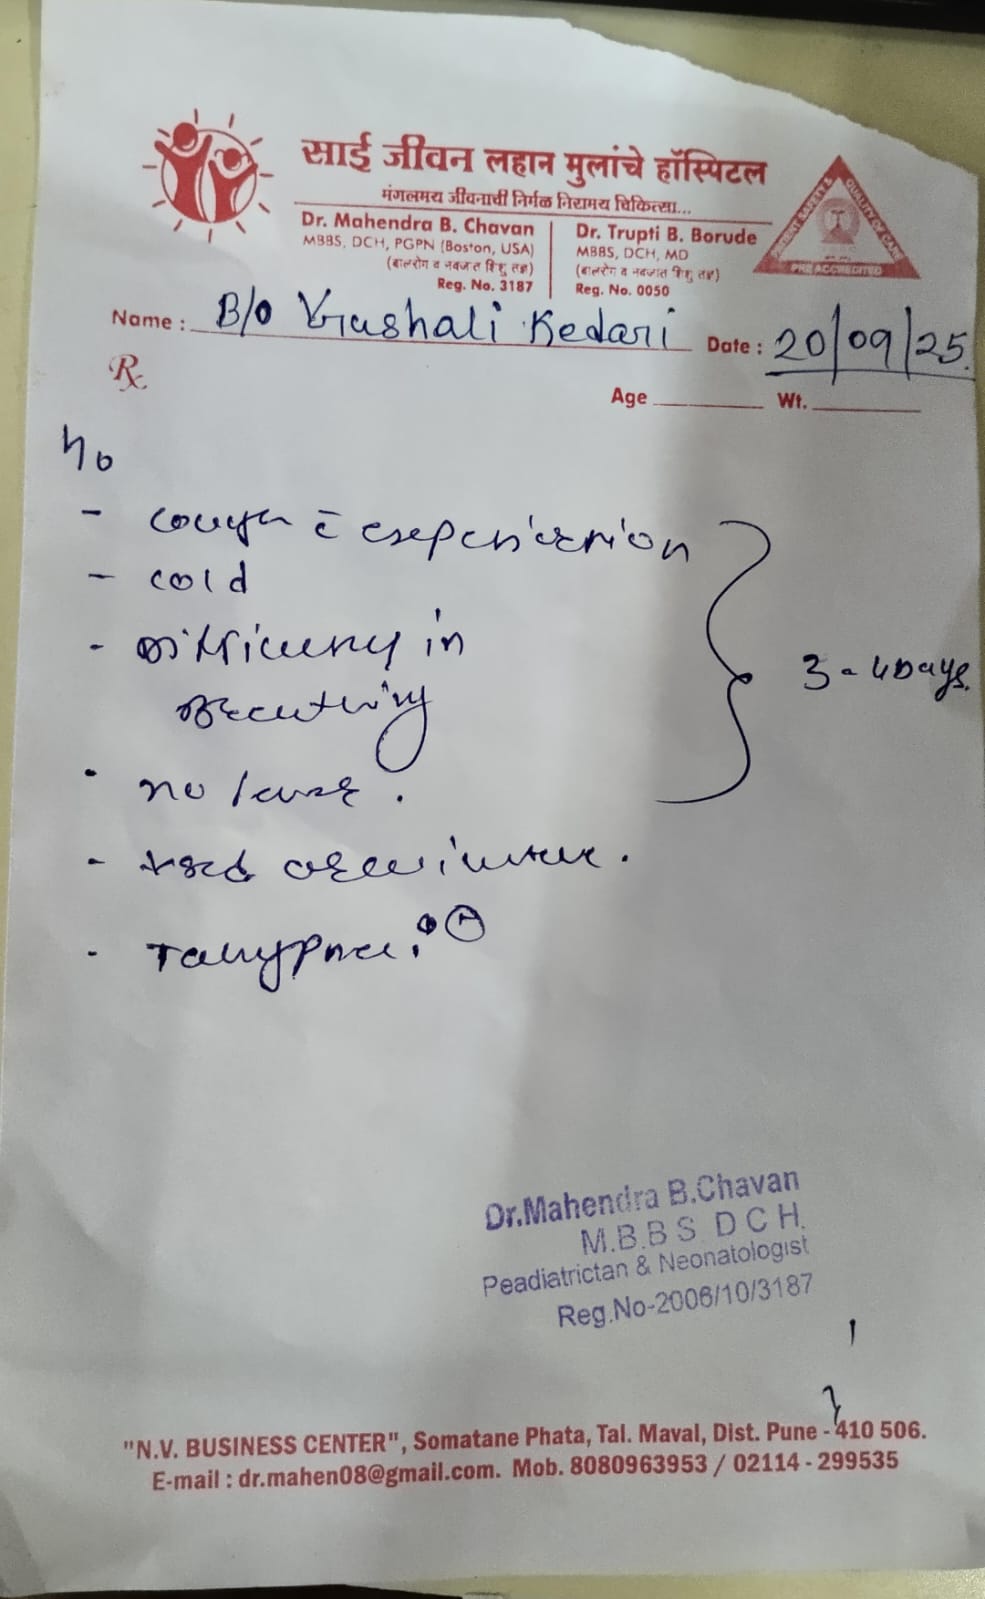 साई जीवन लहान मुलांचे हॉस्पिटल
मंगलमय जीवनाची निर्मळ निरामय चिकित्सा...
Dr. Mahendra B. Chavan
MBBS, DCH, PGPN (Boston, USA)
(बालरोग व नवजात शिशु तज्ञ)
Reg. No. 3187
Dr. Trupti B. Borude
MBBS, DCH, MD
(बालरोग व नवजात शिशु तज्ञ)
Reg. No. 0050
PATIENT SAFETY & QUALITY OF CARE
PRE ACCREDITED
Name : B/O Vrushali Kedari Date : 20/09/25.
Rx
Age Wt.
H/o
- cough c̄
- cold
- difficulty in
breathing
3-4 Days.
-
-
- Tachypnea
Dr.Mahendra B.Chavan
M.B.B S D C H.
Peadiatrictan & Neonatologist
Reg.No-2006/10/3187
"N.V. BUSINESS CENTER", Somatane Phata, Tal. Maval, Dist. Pune - 410 506.
E-mail : dr.mahen08@gmail.com. Mob. 8080963953 / 02114 - 299535